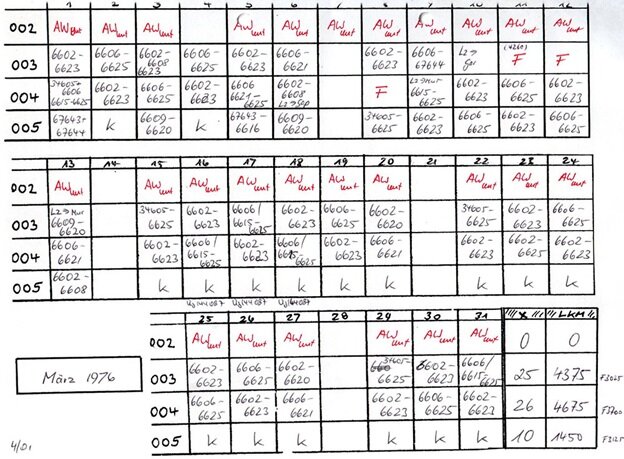 1 2 3 4 5 6 7 8 9 10 11 12
002 AW AW AW AW AW AW AW AW AW AW AW
003 6602-6623 6606-6625 6602-6608 6623 6606-6625 6602-6623 6606-6621 6602-6623 6606-67644 L2→ (4260) F F
004 34605+ 6606 6615+6625 6602-6623 6606-6625 6602-6623 6606 6621-6625 6602-6608 F L2→Mur 6615-6625 6602-6623 6606-6625 6602-6623
005 67643+ 67644 k 6609-6620 k 67643-6616 6609-6620 34605-6625 6602-6623 6606-6625 6602-6623 6606-6625
13 14 15 16 17 18 19 20 21 22 23 24
002 AW AW AW AW AW AW AW AW AW AW
003 L2→Mur 6609-6620 34605-6625 6602-6623 6606/ 6615-6625 6602-6623 6606-6625 6602-6620 34605-6625 6602-6623 6606-6625
004 6606-6621 6602-6623 6606/ 6615-6625 6602-6623 6606/ 6615-6625 6602-6623 6606-6621 6602-6623 6602-6623 6602-6623
005 6602-6608 k k k k k k k k k
25 26 27 28 29 30 31 X LKM
002 AW AW AW AW AW AW 0 0
003 6602-6623 6606-6625 6602-6620 34605-6625 6602-6623 6606/ 6615-6625 25 4375 F3025
004 6606-6625 6602-6623 6606-6621 6602-6623 6606-6625 6602-6623 26 4675 F3700
005 k k k k k k 10 1450 F3125
März 1976
4/01